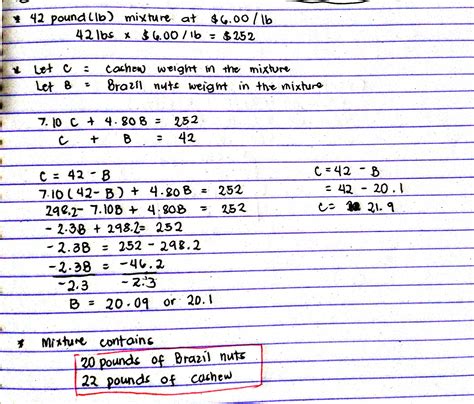 * 42 pound(lb) mixture at $6.00/lb
42 lbs x $6.00/lb = $252
* Let C = cashew weight in the mixture
Let B = Brazil nuts weight in the mixture
7.10 C + 4.80B = 252
C + B = 42
C = 42 - B
7.10(42-B) + 4.80B = 252
298.2- 7.10B + 4.80B = 252
-2.3B + 298.2= 252
-2.3B = 252 - 298.2
-2.3B = -46.2
-2.3 -2.3
B = 20.09 or 20.1
C=42 - B
= 42 - 20.1
C= 21.9
* Mixture contains
20 pounds of Brazil nuts
22 pounds of cashew